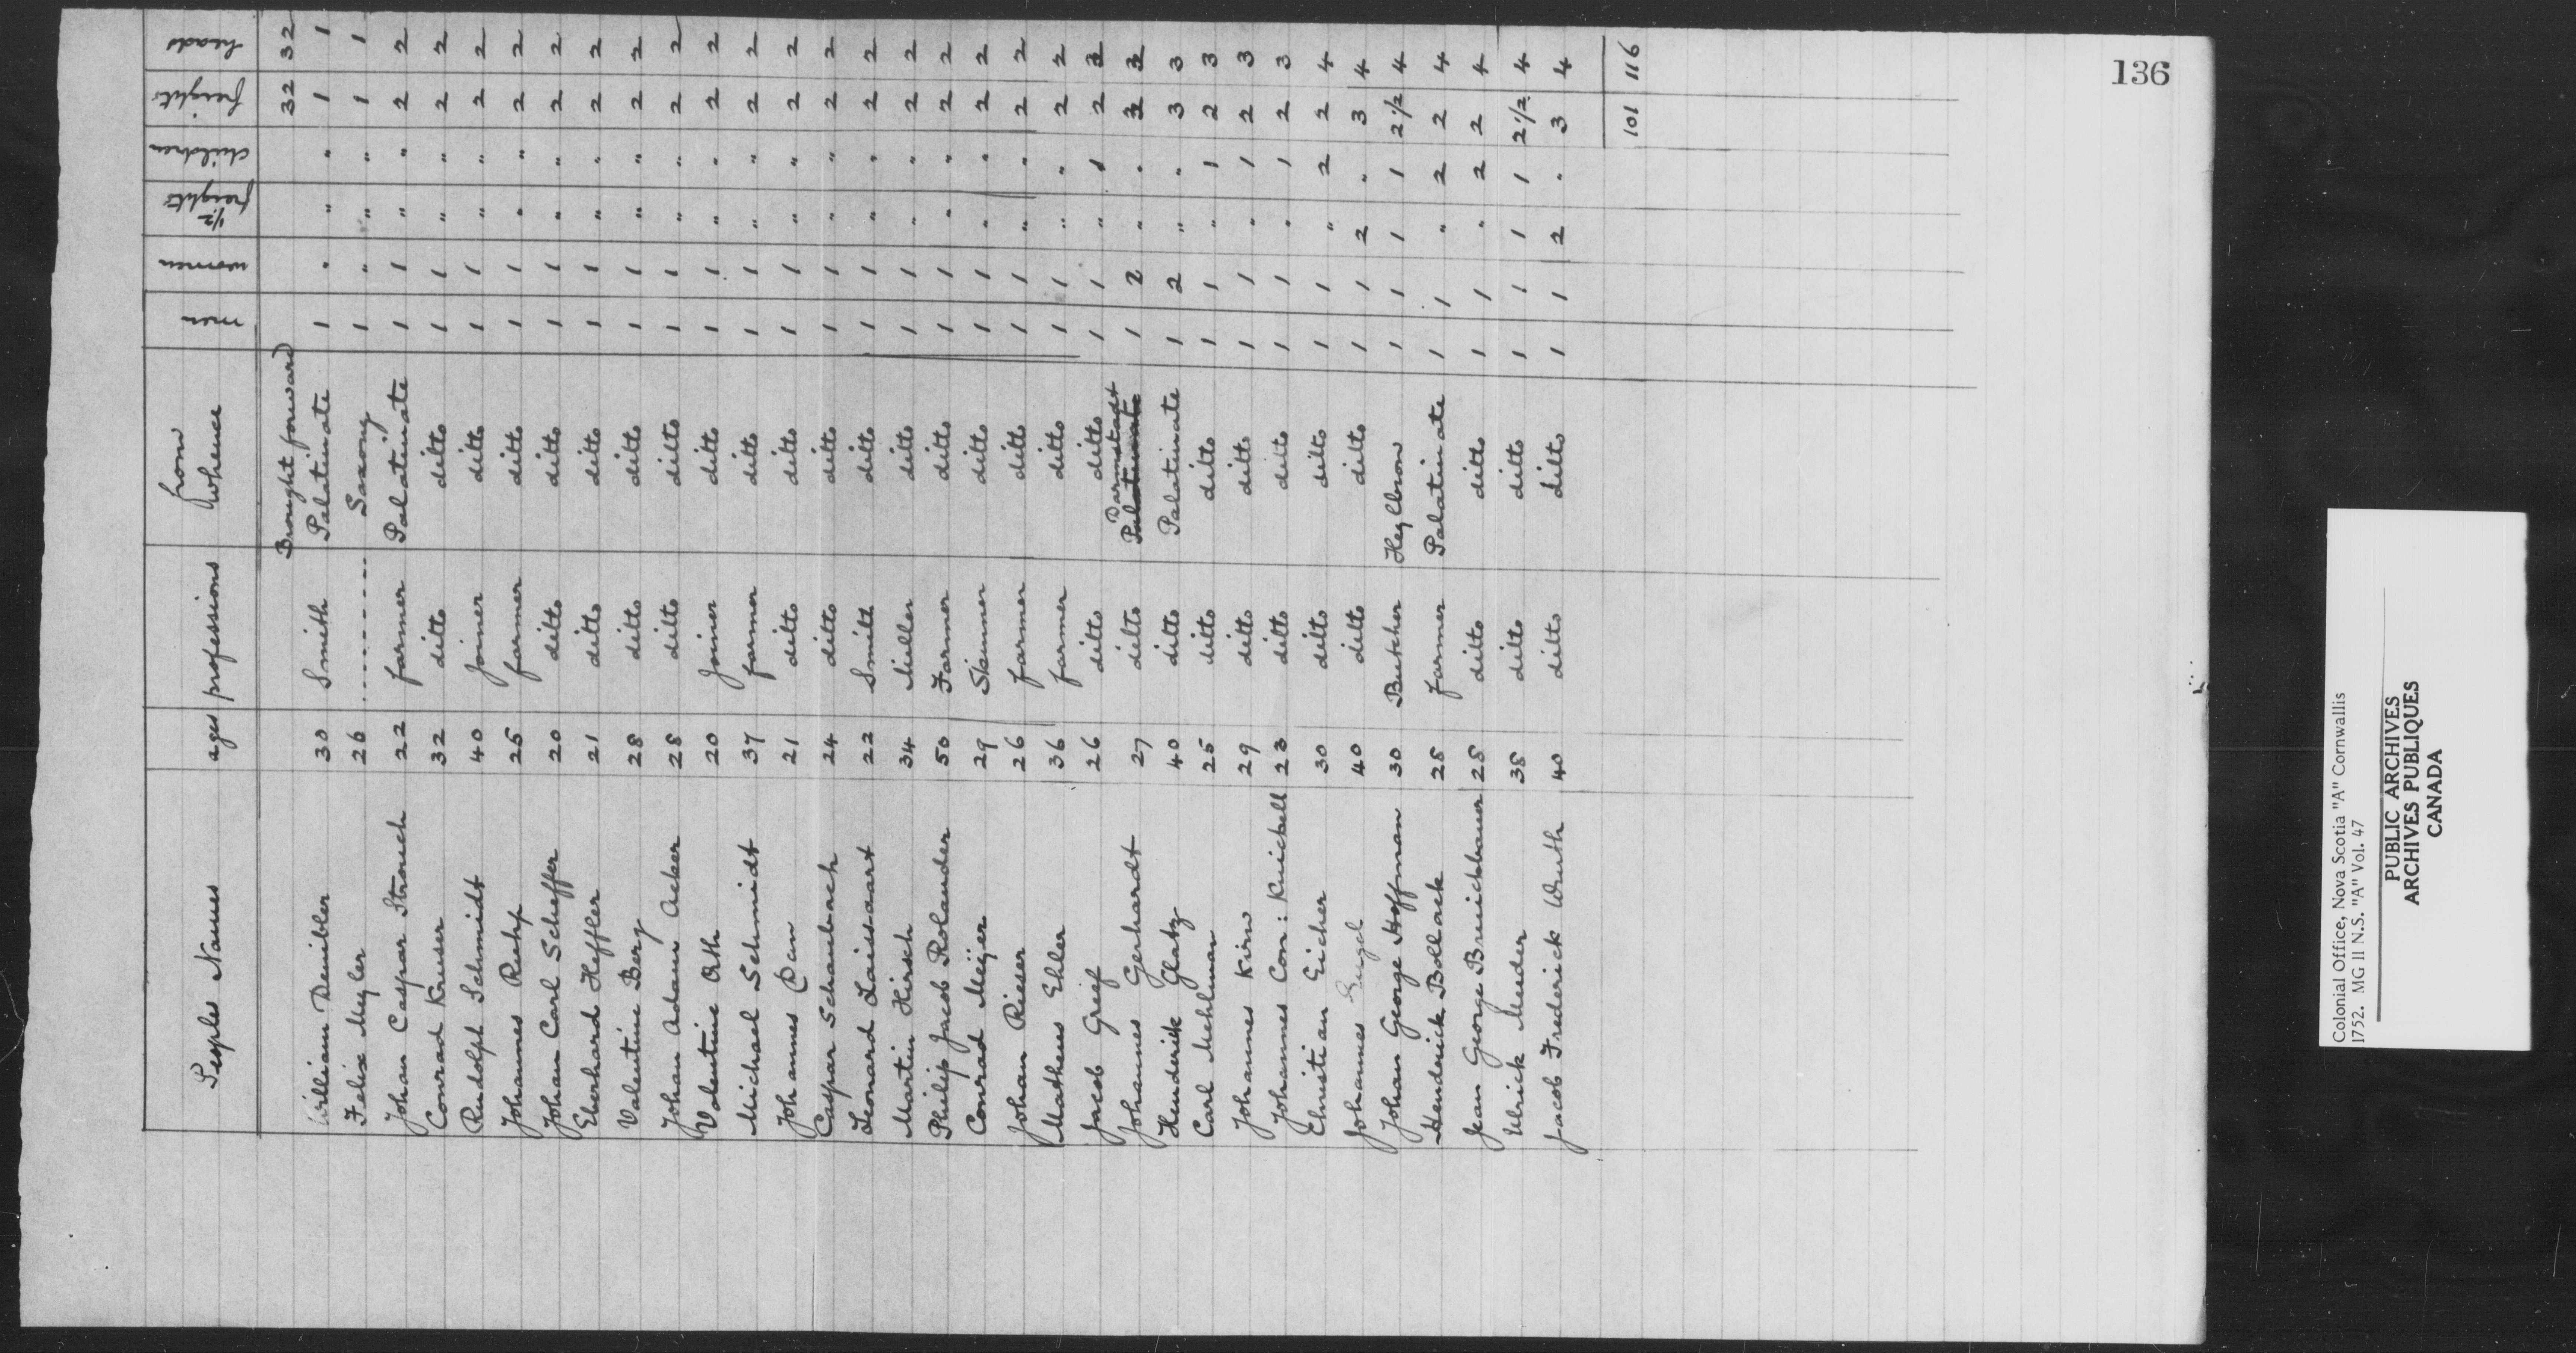 136
Peoples Names ages professions from whence men women 1/2 freights children freights heads
Brought forward 32 32
William Deubler 30 Smith Palatinate 1 " " " 1 1
Felix Meyler 26 -------- Saxony 1 " " " 1 1
Johan Caspar Strouch 22 farmer Palatinate 1 1 " " 2 2
Conrad Kruser 32 ditto ditto 1 1 " " 2 2
Rudolph Schmidt 40 Joiner ditto 1 1 " " 2 2
Johannes Ruhp 25 farmer ditto 1 1 " " 2 2
Johan Carl Scheffer 20 ditto ditto 1 1 " " 2 2
Eberhard Heffler 21 ditto ditto 1 1 " " 2 2
Valentine Berg 28 ditto ditto 1 1 " " 2 2
Johan Adam Acker 28 ditto ditto 1 1 " " 2 2
Valentine Oth 20 Joiner ditto 1 1 " " 2 2
Michael Schmidt 37 farmer ditto 1 1 " " 2 2
Johannes 21 ditto ditto 1 1 " " 2 2
Caspar Schaubach 24 ditto ditto 1 1 " " 2 2
Leonard 22 Smith ditto 1 1 " " 2 2
Martin Hirsch 34 Miller ditto 1 1 " " 2 2
Philip Jacob Rolander 50 Farmer ditto 1 1 " " 2 2
Conrad Meÿer 29 Skinner ditto 1 1 " " 2 2
Johan Rieser 26 farmer ditto 1 1 " " 2 2
Matheus Ehler 36 farmer ditto 1 1 " " 2 2
Jacob Grief 26 ditto ditto 1 1 " 1 2 3
Johannes Gerhardt 27 ditto Darmstadt Palatinate 1 2 " " 3 3
Henderick Glatz 40 ditto Palatinate 1 2 " " 3 3
Carl Mehlman 25 ditto ditto 1 1 " 1 2 3
Johannes Kirn 29 ditto ditto 1 1 " 1 2 3
Johannes Con: Knichell 23 ditto ditto 1 1 " 1 2 3
Christian Eicher 30 ditto ditto 1 1 " 2 2 4
Johannes Engel 40 ditto ditto 1 1 2 " 3 4
Johan George Hoffman 30 Butcher Heylbron 1 1 1 1 2 1/2 4
Henderick Bollack 28 farmer Palatinate 1 1 " 2 2 4
Jean George Bruickhauer 28 ditto ditto 1 1 " 2 2 4
Ulrick Muder 38 ditto ditto 1 1 1 1 2 1/2 4
Jacob Frederick Wruth 40 ditto ditto 1 1 2 " 3 4
101 116
Colonial Office, Nova Scotia "A" Cornwallis
1752. MG 11 N.S. "A" Vol. 47
PUBLIC ARCHIVES
ARCHIVES PUBLIQUES
CANADA